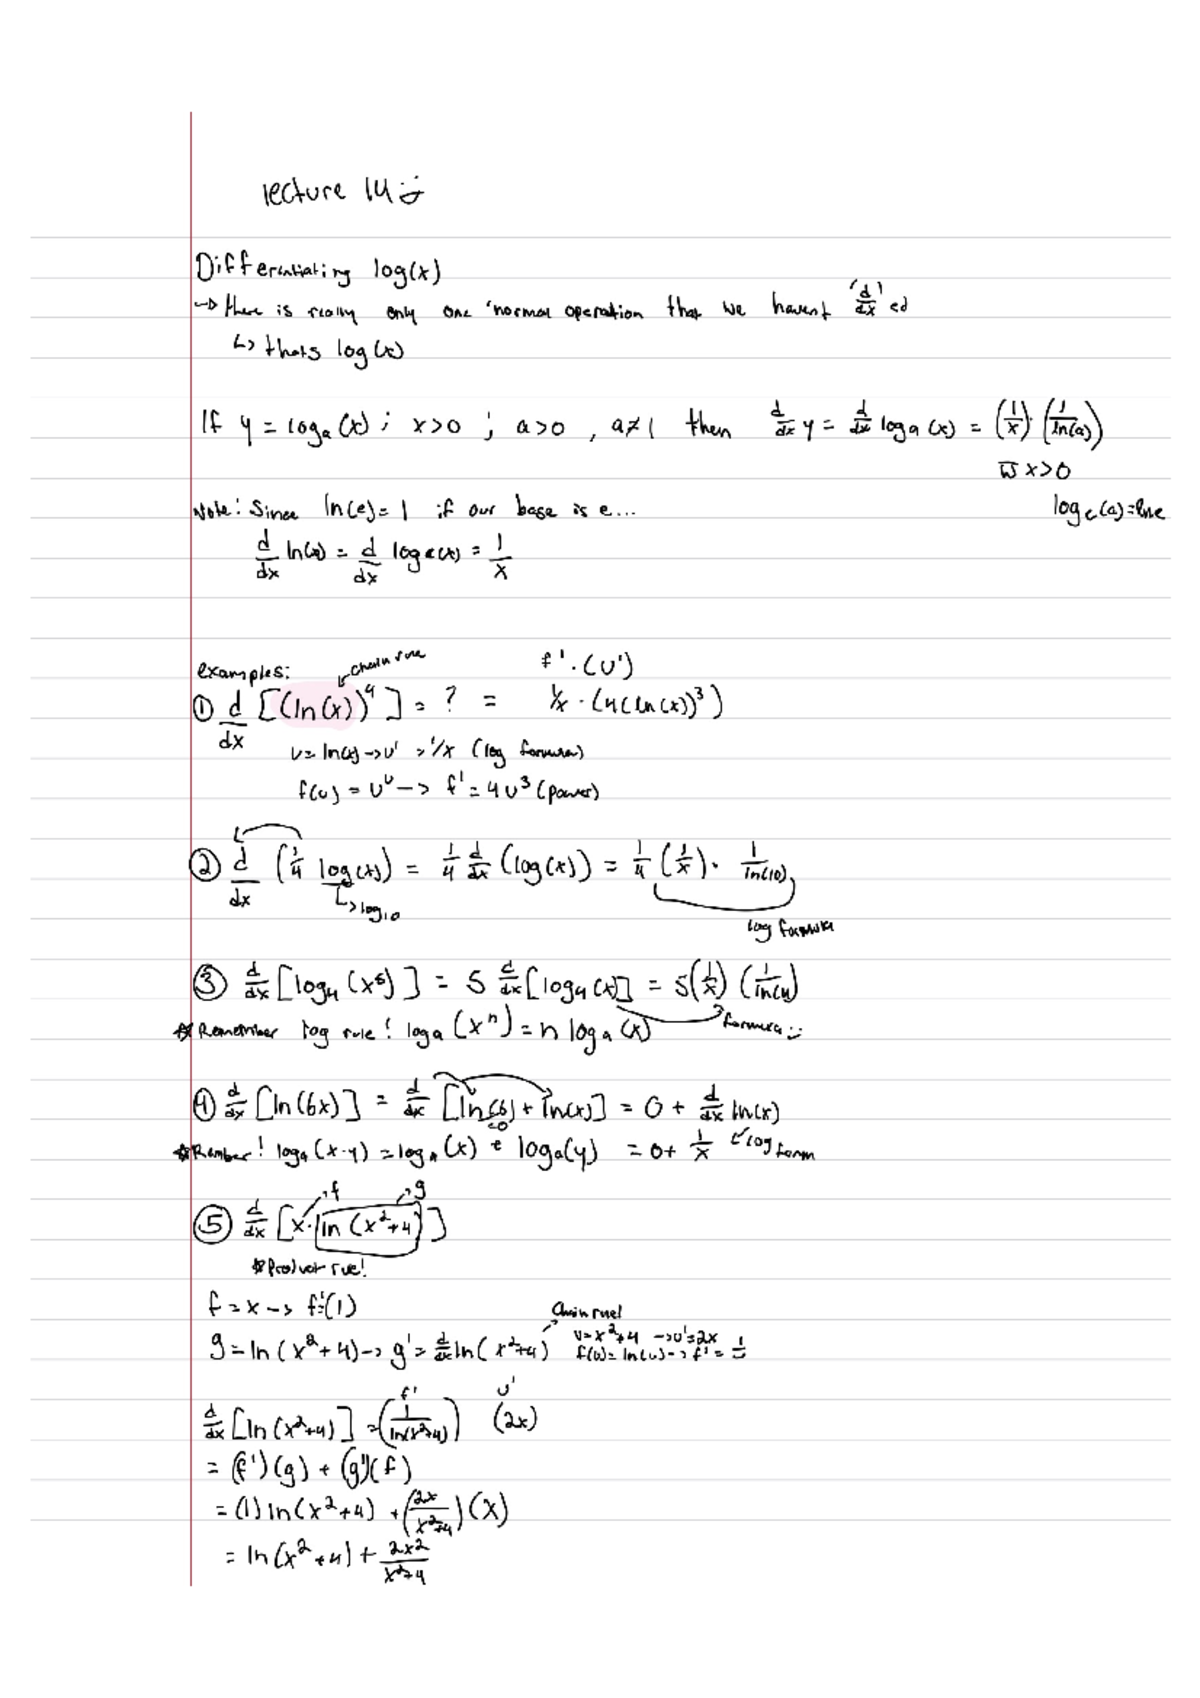 lecture 14  :)
Differentiating log(x)
→ there is really only one 'normal operation that we havent 'd/dx' ed
↳ thats log(x)
If y = logₐ(x) ; x>0 ; a>0 , a≠1 then d/dx y = d/dx logₐ(x) = (1/x)·(1/ln(a))
x>0
Note: Since ln(e)=1 if our base is e...
d/dx ln(x) = d/dx logₑ(x) = 1/x
examples: chain rule f'·(u')
① d/dx [(ln(x))⁴] = ? = 1/x · (4(ln(x))³)
u= ln(x) → u' = 1/x (log formula)
f(u) = u⁴ → f' = 4u³ (power)
② d/dx (1/4 log(x)) = 1/4 d/dx (log(x)) = 1/4 (1/x) · 1/ln(10)
↳ log₁₀
log formula
③ d/dx [log₄(x⁵)] = 5 d/dx [log₄(x)] = 5(1/x) (1/ln(4))
☆ Remember log rule! logₐ(xⁿ) = n logₐ(x) formula :)
④ d/dx [ln(6x)] = d/dx [ln(6) + ln(x)] = 0 + d/dx ln(x)
=0
☆ Rember! logₐ(x·y) = logₐ(x) + logₐ(y) = 0+ 1/x ← log form
f g
⑤ d/dx [x· ln(x²+4)]
☆ Product rue!
f = x → f'=(1)
Chain rue!
g = ln(x²+4) → g' = d/dx ln(x²+4) u=x²+4 → u'=2x
f(u)=ln(u) → f' = 1/u
f' u'
d/dx [ln(x²+4)] = (1/ln(x²+4)) (2x)
= (f')(g) + (g')(f)
= (1) ln(x²+4) + (2x/x²+4)(x)
= ln(x²+4) + 2x2/x²+4